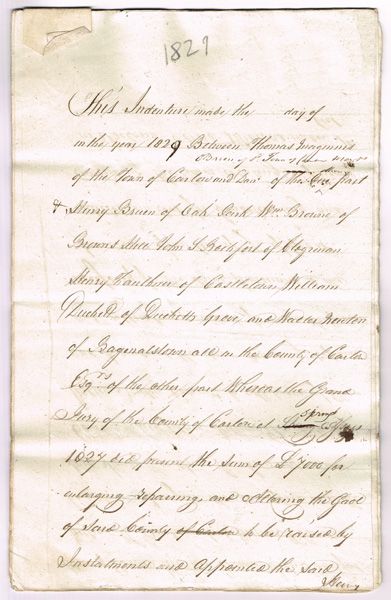 1829
This Indenture made the day of
in the year 1829 Between Thomas
of the Town of Carlow and of the One part
+ Henry Bruen of Oak Park Wm Browne of
Browns Hill John S Rochfort of Clogrinan
Henry Faulkner of Castletown William
Duckett of Ducketts Grove and Walter Newton
of Bagenalstown all in the County of Carlow
Esqrs of the other part Whereas the Grand
Jury of the County of Carlow at Spring Assizes
1827 did present the Sum of £7000 for
enlarging repairing and Altering the Gaol
of Said County of Carlow to be raised by
Instalments and Appointed the said
Henry